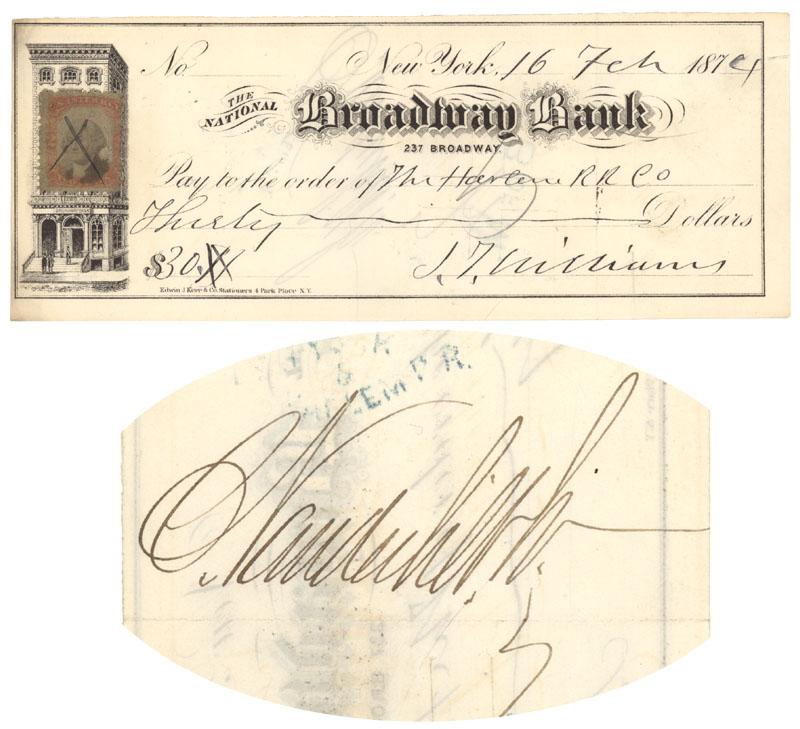 No. New York, 16 Feb 1874
THE NATIONAL Broadway Bank
237 BROADWAY.
Pay to the order of The Harlem R R Co
Thirty Dollars
$30.XX J. T. Williams
Edwin J Kerr & Co. Stationers 4 Park Place N.Y.
&
R.R.
C. Vanderbilt